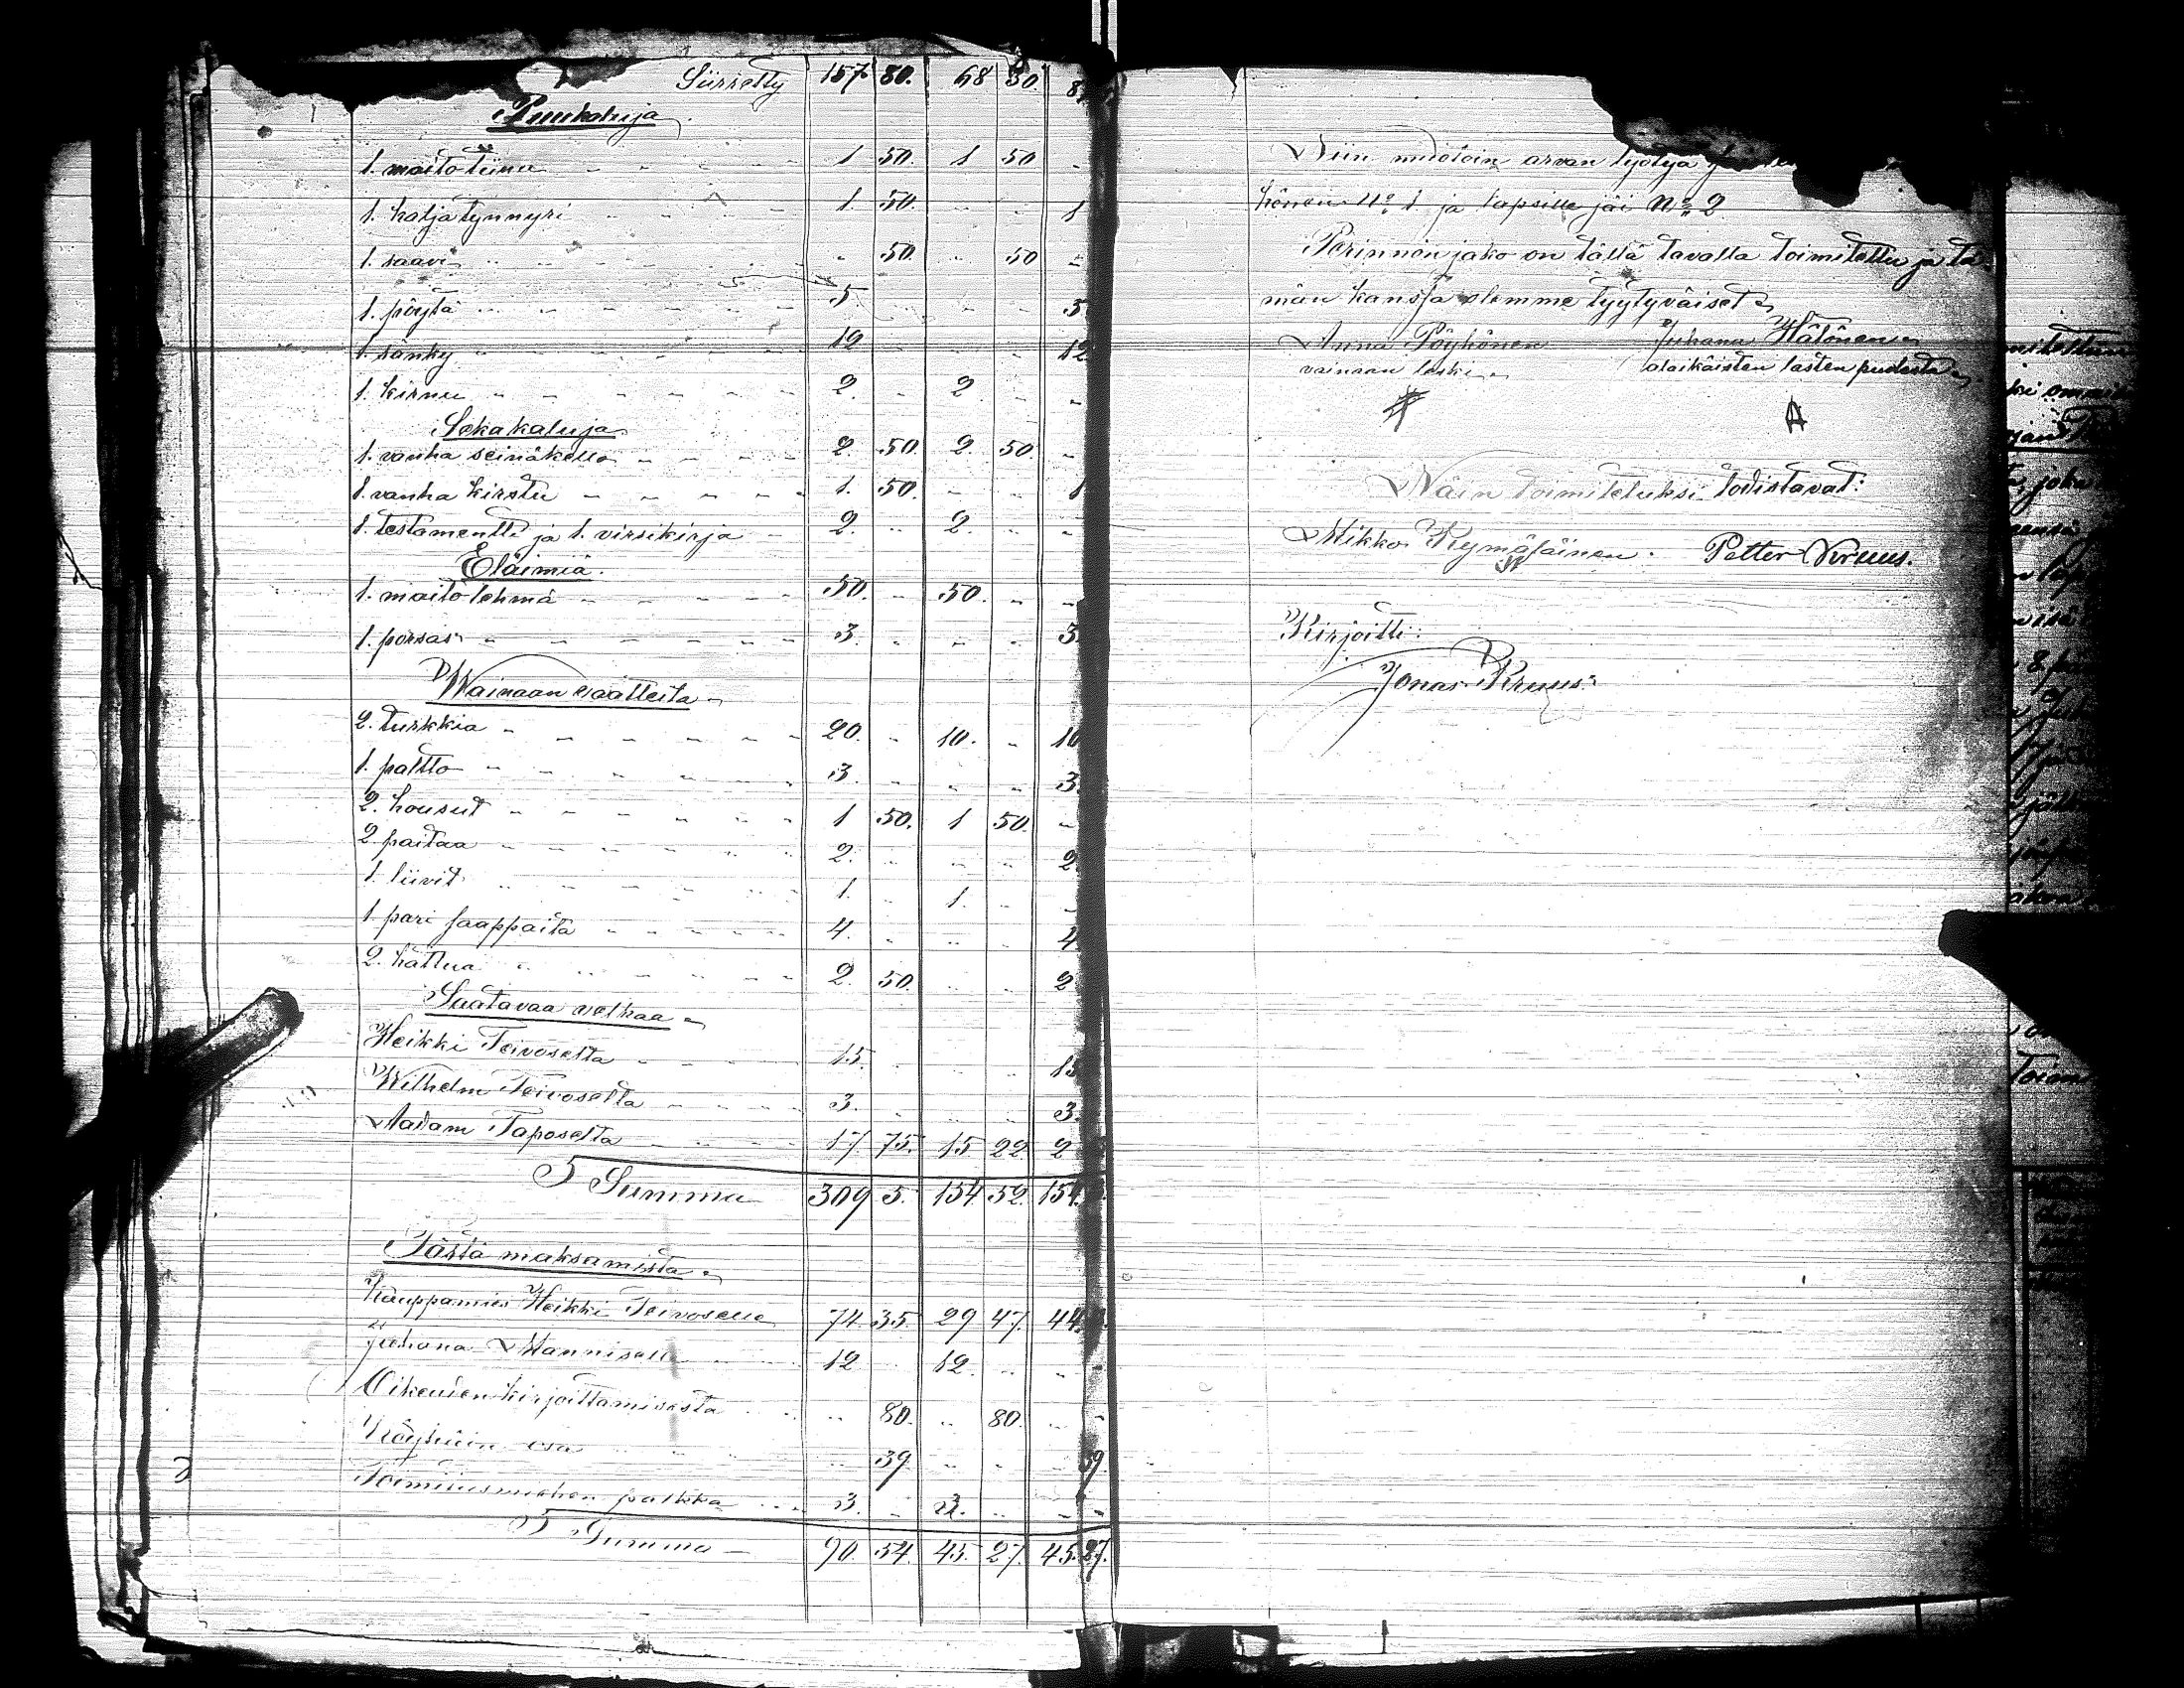 Siirretty 157 80. 68 30. 8
Puukaluja
1. maitotiinu " " 1 50. 1 50 -
1. kaljatynnyri - - 1. 50. - - 1
1. saavi - - " 50. " 50 -
1. pöytä - - 5 - - - 5
1. sänky - - 12 - - - 12
1. kirnu - - 2. - 2 - -
Sekakaluja
1. vanha seinäkello - - 2. 50. 2. 50. -
1. vanha kirstu - - 1. 50. - - 1
1. testamentti ja 1. virsikirja - 2. .. 2. .. -
Eläimiä.
1. maito lehmä - - 50. - 50. - -
1. porsas - - 3. - - - 3.
Wainaan vaatteita
2. turkkia - - 20. - 10. - 10
1. paltto - - 3. - - - 3.
2. housut - - 1 50. 1 50. -
2 paitaa - - 2. - - - 2
1. liivit - - 1. - 1. - -
1 pari saappaita - - 4. - - - 4
2. hattua - - 2. 50. - - 2
Saatavaa velkaa
Heikki Toivoselta - - 15. - - - 15
Wilhelm Toivoselta - - 3. - - - 3.
Aadam Taposelta - - 17. 75. 15 22. 2
Summa 309 5. 154 52. 154.
Tästä maksamista
Kauppamies Heikki Toivoselle 74. 35. 29 47. 44.
Juhana Manniselle - - 12 - 12. - - -
Oikeuden kirjoittamisesta - .. 80. .. 80. - -
Köyhäin osa .. 39. .. - - 39.
Toimitusmiehen palkka - 3. - 3. - - -
Summa - 90. 54. 45. 27. 45. 27.
Niin muotoin arvan lyötyä
hönen No 1 ja lapsille jäi No 2
Perinnön jako on tällä tavalla toimitettu ja tä-
män kanssa olemme tyytyväiset
Anna Pöyhönen Juhana Hätönen
vainaan leski alaikäisten lasten puolesta
Näin toimitetuksi todistavat:
Mikko Kymäläinen. Petter Kruus.
Kirjoitti:
Jonas Kruus